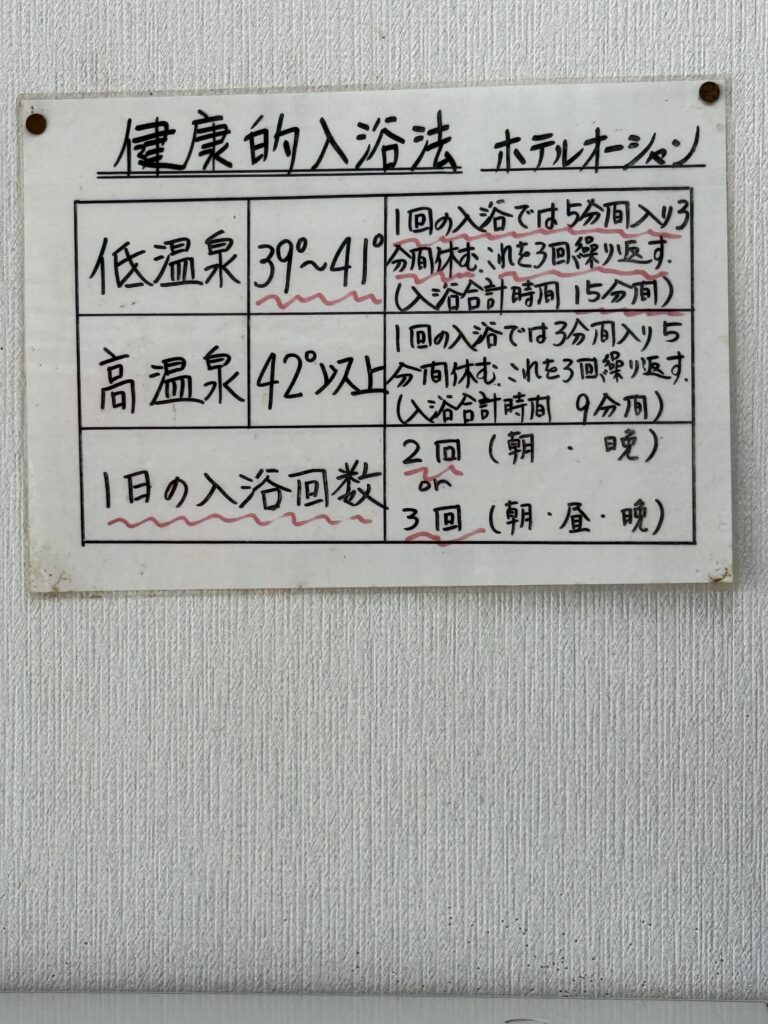 健康的入浴法 ホテルオーシャン
低温泉 39°~41° 1回の入浴では5分間入り3
分間休む、これを3回繰り返す.
(入浴合計時間 15分間)
高温泉 42°以上 1回の入浴では3分間入り5
分間休む、これを3回繰り返す.
(入浴合計時間 9分間)
1日の入浴回数 2回 (朝・晩)
or
3回 (朝・昼・晩)